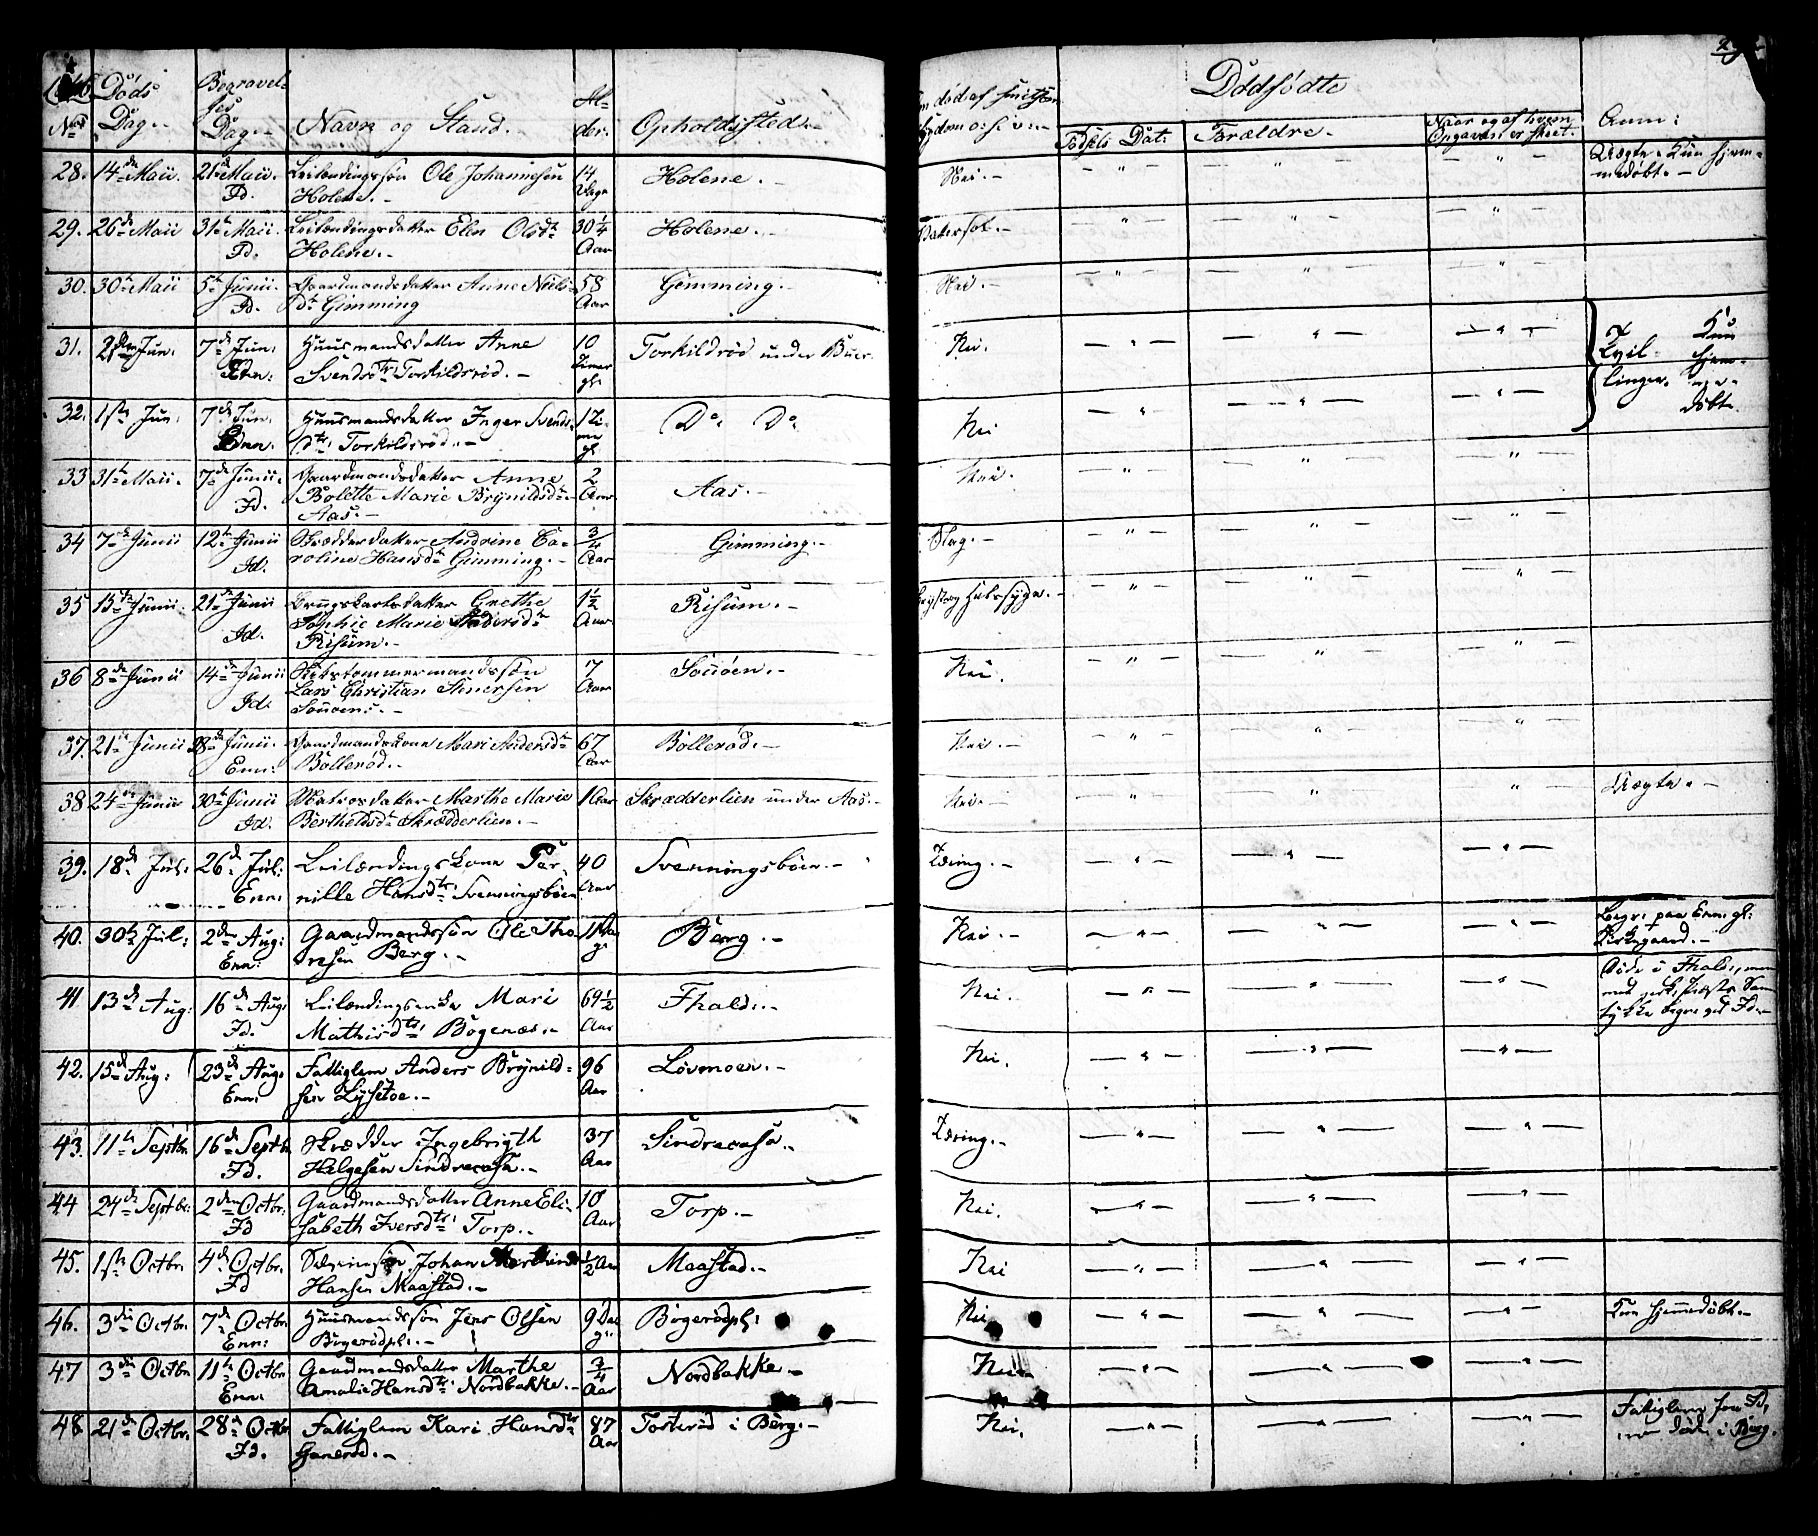 Nr. Döds Dag. Begravelses Dag. Navn og Stand. Alder. Opholdssted.
Dödfödte
Födsels Dat: Forældre. Naar og af hvem Opgaven er skeet. Anm:
28. 14de Maii. 21de Maii. Id. Leilændingssön Ole Johannesen Holene. 14 Dage Holene. Nei. Uægte. Kun hjemmedöbt.
29. 26de Maii 31te Maii. Id. Leilændingsdatter Elen Olsdtr Holene. 30 1/4 Aar Holene.
30. 30te Maii 5te Junii. Id. Gaardmandsdatter Anne Nielsdtr Gimming 58 Aar Gimming. Nei.
31. 2den Jun. 7de Jun. Enn: Huusmandsdatter Anne Svendsdtr: Torkildsröd. 10 Timer gl: Torkildröd under Buer. Nei. Tvillinger. Kun hjemmedöbt.
32. 1ste Jun. 7de Jun. Enn. Huusmandsdatter Inger Svendsdtr: Torkildsröd. 1 Time gl Do Do Nei
33 31te Maii. 7de Junii. Id. Gaardmandsdatter Anne Bolette Marie Brynildsdtr Aas. 2 Aar Aas. Nei.
34 7de Junii 12te Junii Id. Skrædderdatter Andrine Caroline Hansdtr Gimming. 3/4 Aar Gimming. Slag.
35 15de Junii. 21de Junii Id. Grethe Sophie Marie Andersdtr Risum. 1 1/2 Aar Risum. Bryst og Halssyge.
36 8de Junii 14de Junii Id. Skibstömmermandssön Lars Christian Simersen Souöen. 7 Aar Souöen. Nei.
37. 21de Junii 28de Junii. Enn: Gaardmandskone Mari Andersdtr Bolleröd. 67 Aar Bolleröd. Nei.
38 24de Junii 30te Junii Id. Matrosdatter Marthe Marie Bertheldsdtr Skrædderlien. 1 Aar Skrædderlien under Aas. Nei. Uægte.
39. 18de Jul: 26de Jul: Enn: Leilændingskone Pernille Hansdtr: Svenningsböen 40 Aar Svenningsböen. Tæring.
40. 30te Jul: 2den Aug: Enn: Gaardmandssön Ole Thoresen Berg. Berg. Nei. Begr: paa Enn: gl: Kirkegaard.
41. 13de Aug: 16de Aug: Id. Leilændingsenke Mari Mathisdtr: Bogenæs. 69 1/2 Aar Fhald. Nei. Döde i Fhald, men Samtykke begravet Id.
42. 15de Aug: 23de Aug: Enn: Fattiglem Anders Brynildsen Lysetoe. 96 Aar Lövmoen. Nei.
43. 11te Septbr. 16de Septbr. Id. Skrædder Ingebrigth Helgesen Sindrecasa. 37 Aar Sindrecasa. Tæring.
44 24de Septbr: 2den Octbr: Id Gaardmandsdatter Anne Elisabeth Iversdtr: Torp. 10 Aar Torp. Nei.
45. 1ste Octbr. 4de Octbr. Id Johan Hansen Maastad. 1/2 Aar Maastad. Nei
46. 3die Octbr. 7de Octbr. Enn: Huusmandssön Jens Olsen Bögerödpl:. 9 Dage Bögerödpl: Nei Kun hjemmedöbt.
47 3die Octbr 11te Octbr Enn: Gaardmandsdatter Marthe Amalie Hansdtr: Nordbakke. 3/4 Aar Nordbakke Nei
48 21de Octbr. 28de Octbr. Id. Fattiglem Kari Hansdtr 87 Aar Tosteröd i Berg. Nei. Fattiglem fra Id, döde i Berg.